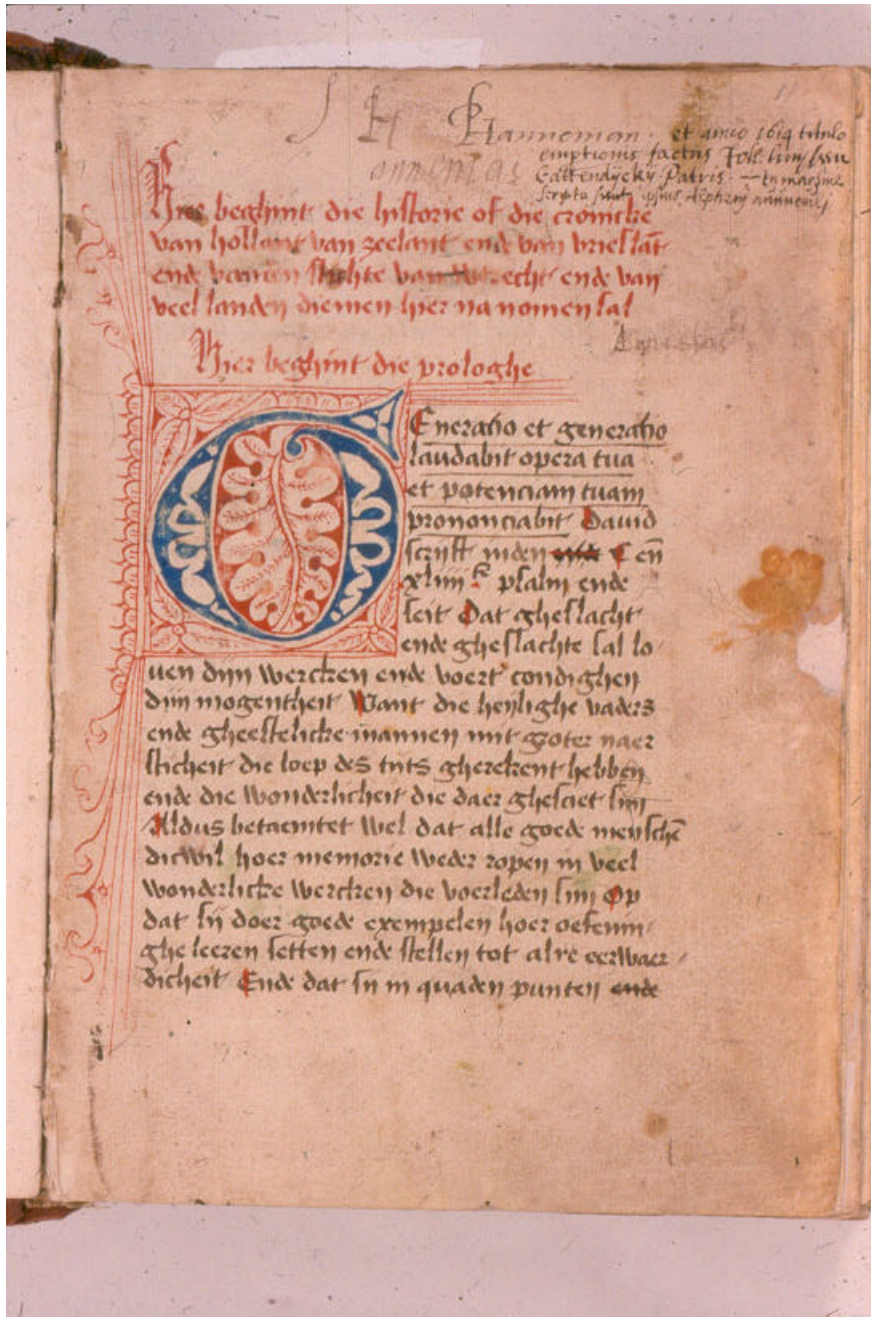 Hannoman. et anno 1614 titulo
emptionis factus Joh.
Patris. — In margine
scripta sunt ipsius
Hier beghint die historie of die cronicke
van hollant van zeelant ende van vrieslāt
ende vanden stichte van vtrecht ende van
veel landen diemen hier na nomen sal
Hier beghint die prologhe
GEneratio et generatio
laudabit opera tua
et potenciam tuam
prononciabit David
scrijft inden C eñ
xliiij psalm ende
seit Dat gheslacht
ende gheslachte sal lo
uen dijn wercken ende voert condighen
dijn mogentheit Want die heylighe vaders
ende gheestelicke mannen mit groter naer
sticheit die loep des tijts gherekent hebben
ende die wonderlicheit die daer ghesciet sijn
Aldus betaemtet wel dat alle goede menschē
dicwil hoer memorie weder ropen in veel
wonderlicke wercken die voerleden sijn Op
dat sij doer goede exempelen hoer oefenin
ghe leeren setten ende stellen tot alre eerwaer
dicheit Ende dat sij in quaden punten ende